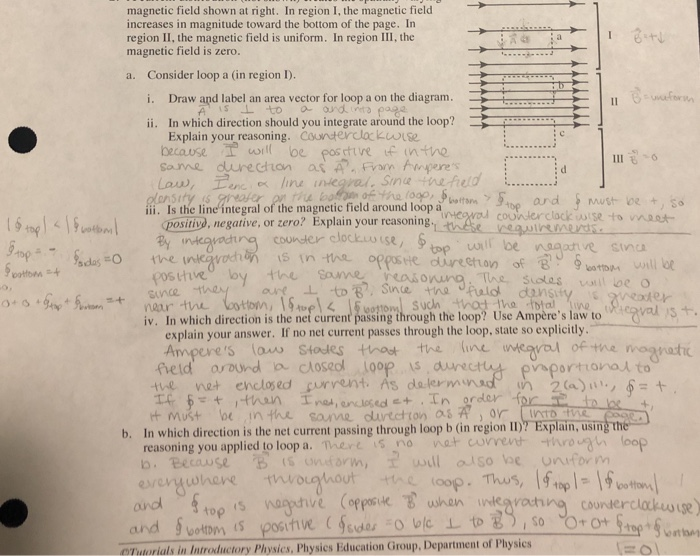 magnetic field shown at right. In region I, the magnetic field
increases in magnitude toward the bottom of the page. In
region II, the magnetic field is uniform. In region III, the
magnetic field is zero.
a
I
b
II
c
III
d
a. Consider loop a (in region I).
i. Draw and label an area vector for loop a on the diagram.
A is ⊥ to a and into page
ii. In which direction should you integrate around the loop?
Explain your reasoning. Counterclockwise
because I will be positive if in the
same direction as A. From Ampere's
Law, Ienc. α line integral. Since the field
density is greater on the bottom of the loop, ∮bottom > ∮top and ∮ must be +, so
iii. Is the line integral of the magnetic field around loop a integral counterclockwise to meet
positive, negative, or zero? Explain your reasoning. these requirements.
|∮top| < |∮bottom|
∮top = -
∮sides = 0
∮bottom = +
0 + 0 + ∮top + ∮bottom = +
By integrating counter clockwise, ∮top will be negative since
the integration is in the opposite direction of B. ∮bottom will be
positive by the same reasoning. The sides will be 0
since they are ⊥ to B. Since the field density is greater
near the bottom, |∮top| < |∮bottom| such that the total line integral is +.
iv. In which direction is the net current passing through the loop? Use Ampère's law to
explain your answer. If no net current passes through the loop, state so explicitly.
Ampere's law states that the line integral of the magnetic
field around a closed loop is directly proportional to
the net enclosed current. As determined in 2(a)iii., ∮ = +
If ∮ = +, then Inet, enclosed = +. In order for I to be +,
it must be in the same direction as A, or into the page.
b. In which direction is the net current passing through loop b (in region II)? Explain, using the
reasoning you applied to loop a. There is no net current through loop
b. Because B is uniform, I will also be uniform
everywhere throughout the loop. Thus, |∮top| = |∮bottom|
and ∮top is negative (opposite B when integrating counterclockwise)
and ∮bottom is positive (∮sides = 0 b/c ⊥ to B), so 0 + 0 + ∮top + ∮bottom
= 0
©Tutorials in Introductory Physics, Physics Education Group, Department of Physics